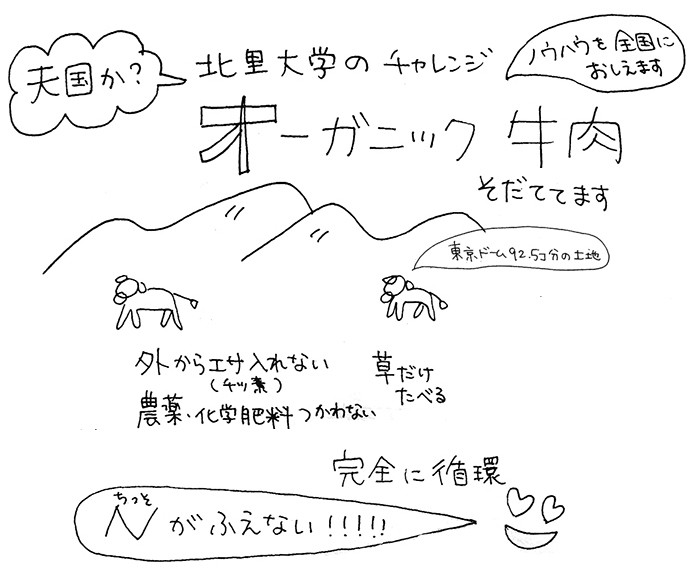 天国か?
北里大学の チャレンジ
ノウハウを全国に
おしえます
オーガニック 牛肉
そだててます
東京ドーム92.5コ分の土地
外からエサ入れない
(チッ素)
農薬・化学肥料つかわない
草だけ
たべる
完全に循環
ちっそ
Nがふえない!!!!!